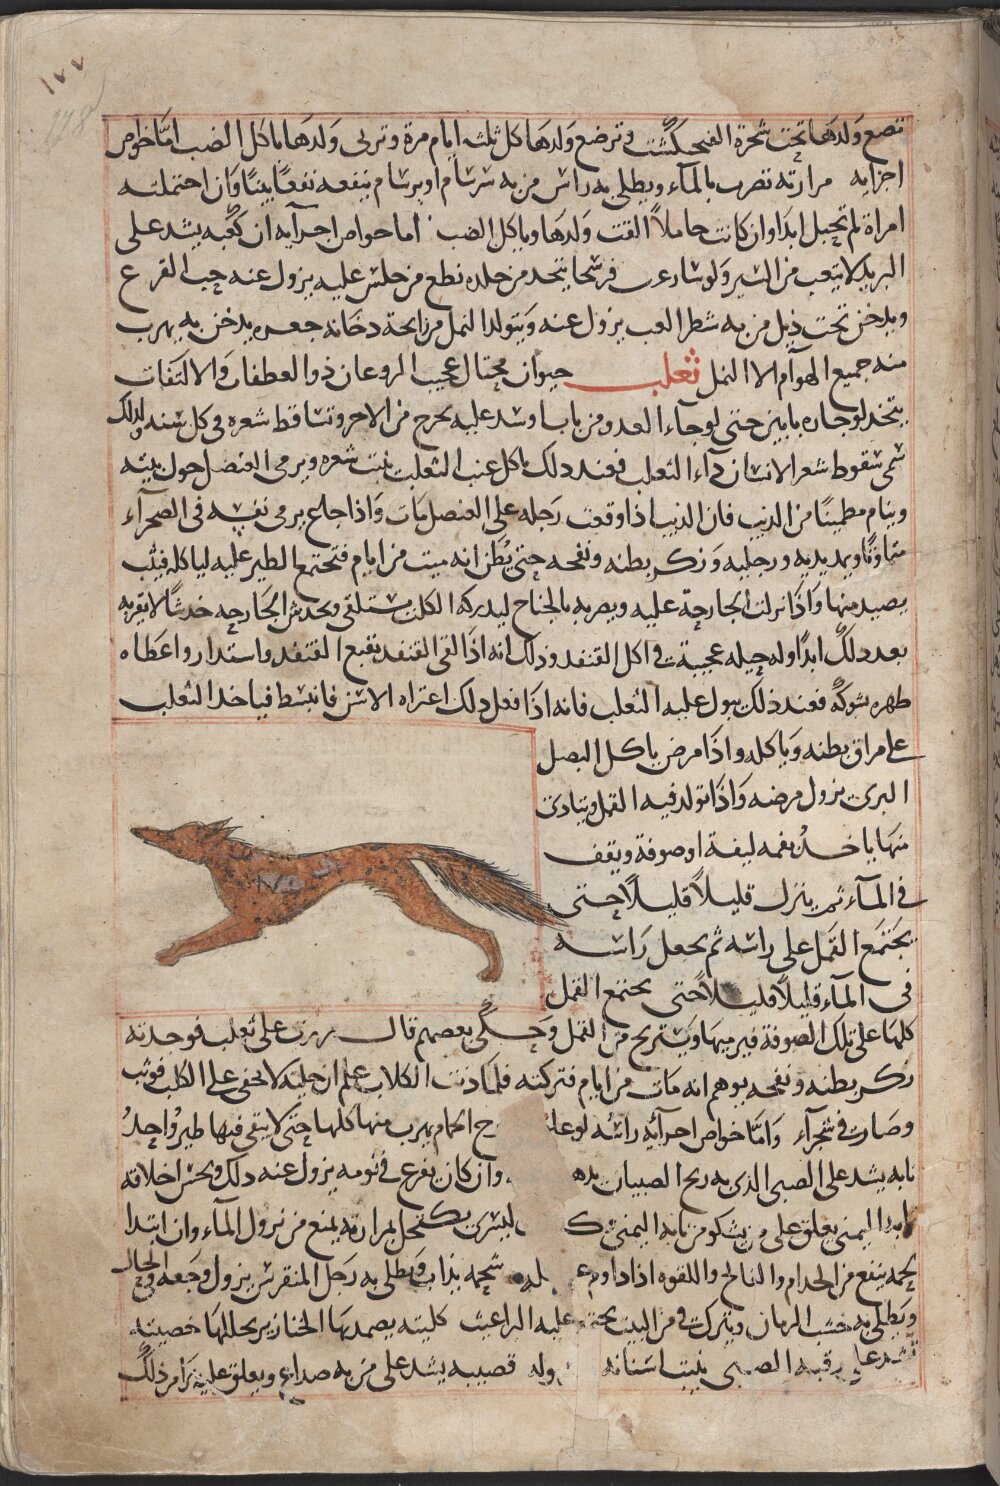 ١٧٧
278
تضع ولدها تحت شجرة الفنجنكشت وترضع ولدها كل ثلثه ايام مرة وتربى ولدها ياكل الضب اما خواص
اجزايه مرارته تضرب بالمآء ويطلى به راس من به سرسام او برسام ينفعه نفعًا بينًا وان احتملته
امراة لم تحبل ابدا وان كانت حاملاً القت ولدها وياكل الضب اما خواص اجرآيه ان كعبه يشد على
البريد لا يتعب من السير ولو سار فرسخا يتخد من جلده نطع من جلس عليه يزول عنه حب القرع
ويدخن تحت ذيل من به شطر الغب يزول عنه ويتولد النمل من رايحة دخانه جعره يدخن به يهرب
منه جميع الهوآم الا النمل ثعلب حيوان محتال عجيب الروغان ذو العطفات والالتفات
يتخد لوجاره بابين حتى لو جاء العدو من باب وشد عليه يخرج من الاخر وتساقط شعره في كل سنه ولدلك
سمى سقوط شعر الانسان دآء الثعلب فعند دلك ياكل عنب الثعلب ينبت شعره ويرمى العنصل حول بيته
وينام مطمينًا من الذيب فان الذيب اذا وقعت رجله على العنصل مات واذا جاع يرمى نفسه فى الصحرآء
متماوتًا ويمد يديه ورجليه وزكر بطنه ونفخه حتى يُظن انه ميت من ايام فتجتمع الطير عليه لياكله فيثب
يصيد منها واذا نزلت الجارحة عليه ويضربه بالجناح ليدركه الكلب يستلقى ويخدش الجارحه خدشًا لا يقربه
بعد دلك ابدًا وله حيله عجيبة فى اكل القنفد ودلك انه اذا لقى القنفد تقبع القنفد واستدار واعطاه
ظهره بشوكه فعند ذلك يبول عليه الثعلب فانه اذا فعل دلك اعتراه الاسر فانبسط فياخد الثعلب
على مراق بطنه وياكله واذا مرض ياكل البصل
البرى يزول مرضه واذا تولد فيه القمل ويتادى
منها ياخذ بفمه ليفة او صوفة ويقف
فى المآء ثم ينزل قليلاً قليلاً حتى
يجتمع القمل على راسه ثم يجعل راسه
فى المآء قليلاً قليلاً حتى يجتمع القمل
كلها على تلك الصوفة فيرميها ويستريح من القمل وحكى بعضهم قال مررت على ثعلب فوجدته
زكر بطنه ونفخه يوهم انه مات من ايام فتركته فلما دنت الكلاب علم ان حيلته لا تخفى على الكلب فوثب
وصارت فى شجرآء واما خواص اجرآئه راسُه لو علق ج الحمام يهرب منها كلها حتى لا يبقى فيها طير واحدُ
نابه يشد على الصبى الذى به ريح الصبيان وان كان يفزع فى نومه يزول عنه دلك ويحسن اخلاقه
نابه اليمنى يعلق على من يشكو من نابه اليمنى يكتحل بمرارته يمنع من نزول المآء وان ابتدا
لحمه ينفع من الجدام والفالج واللقوه اذا داوم شحمه يذاب ويطلى به رجل المنقرس يزول وجعه فى الحال
ويطلى به خشب الرمان ويترك فى من البيت يجتمع عليه البراغيث كليته يضمد بها الخنازير يحللها خصيته
تشد على رقبة الصبى ينبت اسنانه وله قضيبه يشد على من به صداع ويعلق عليه